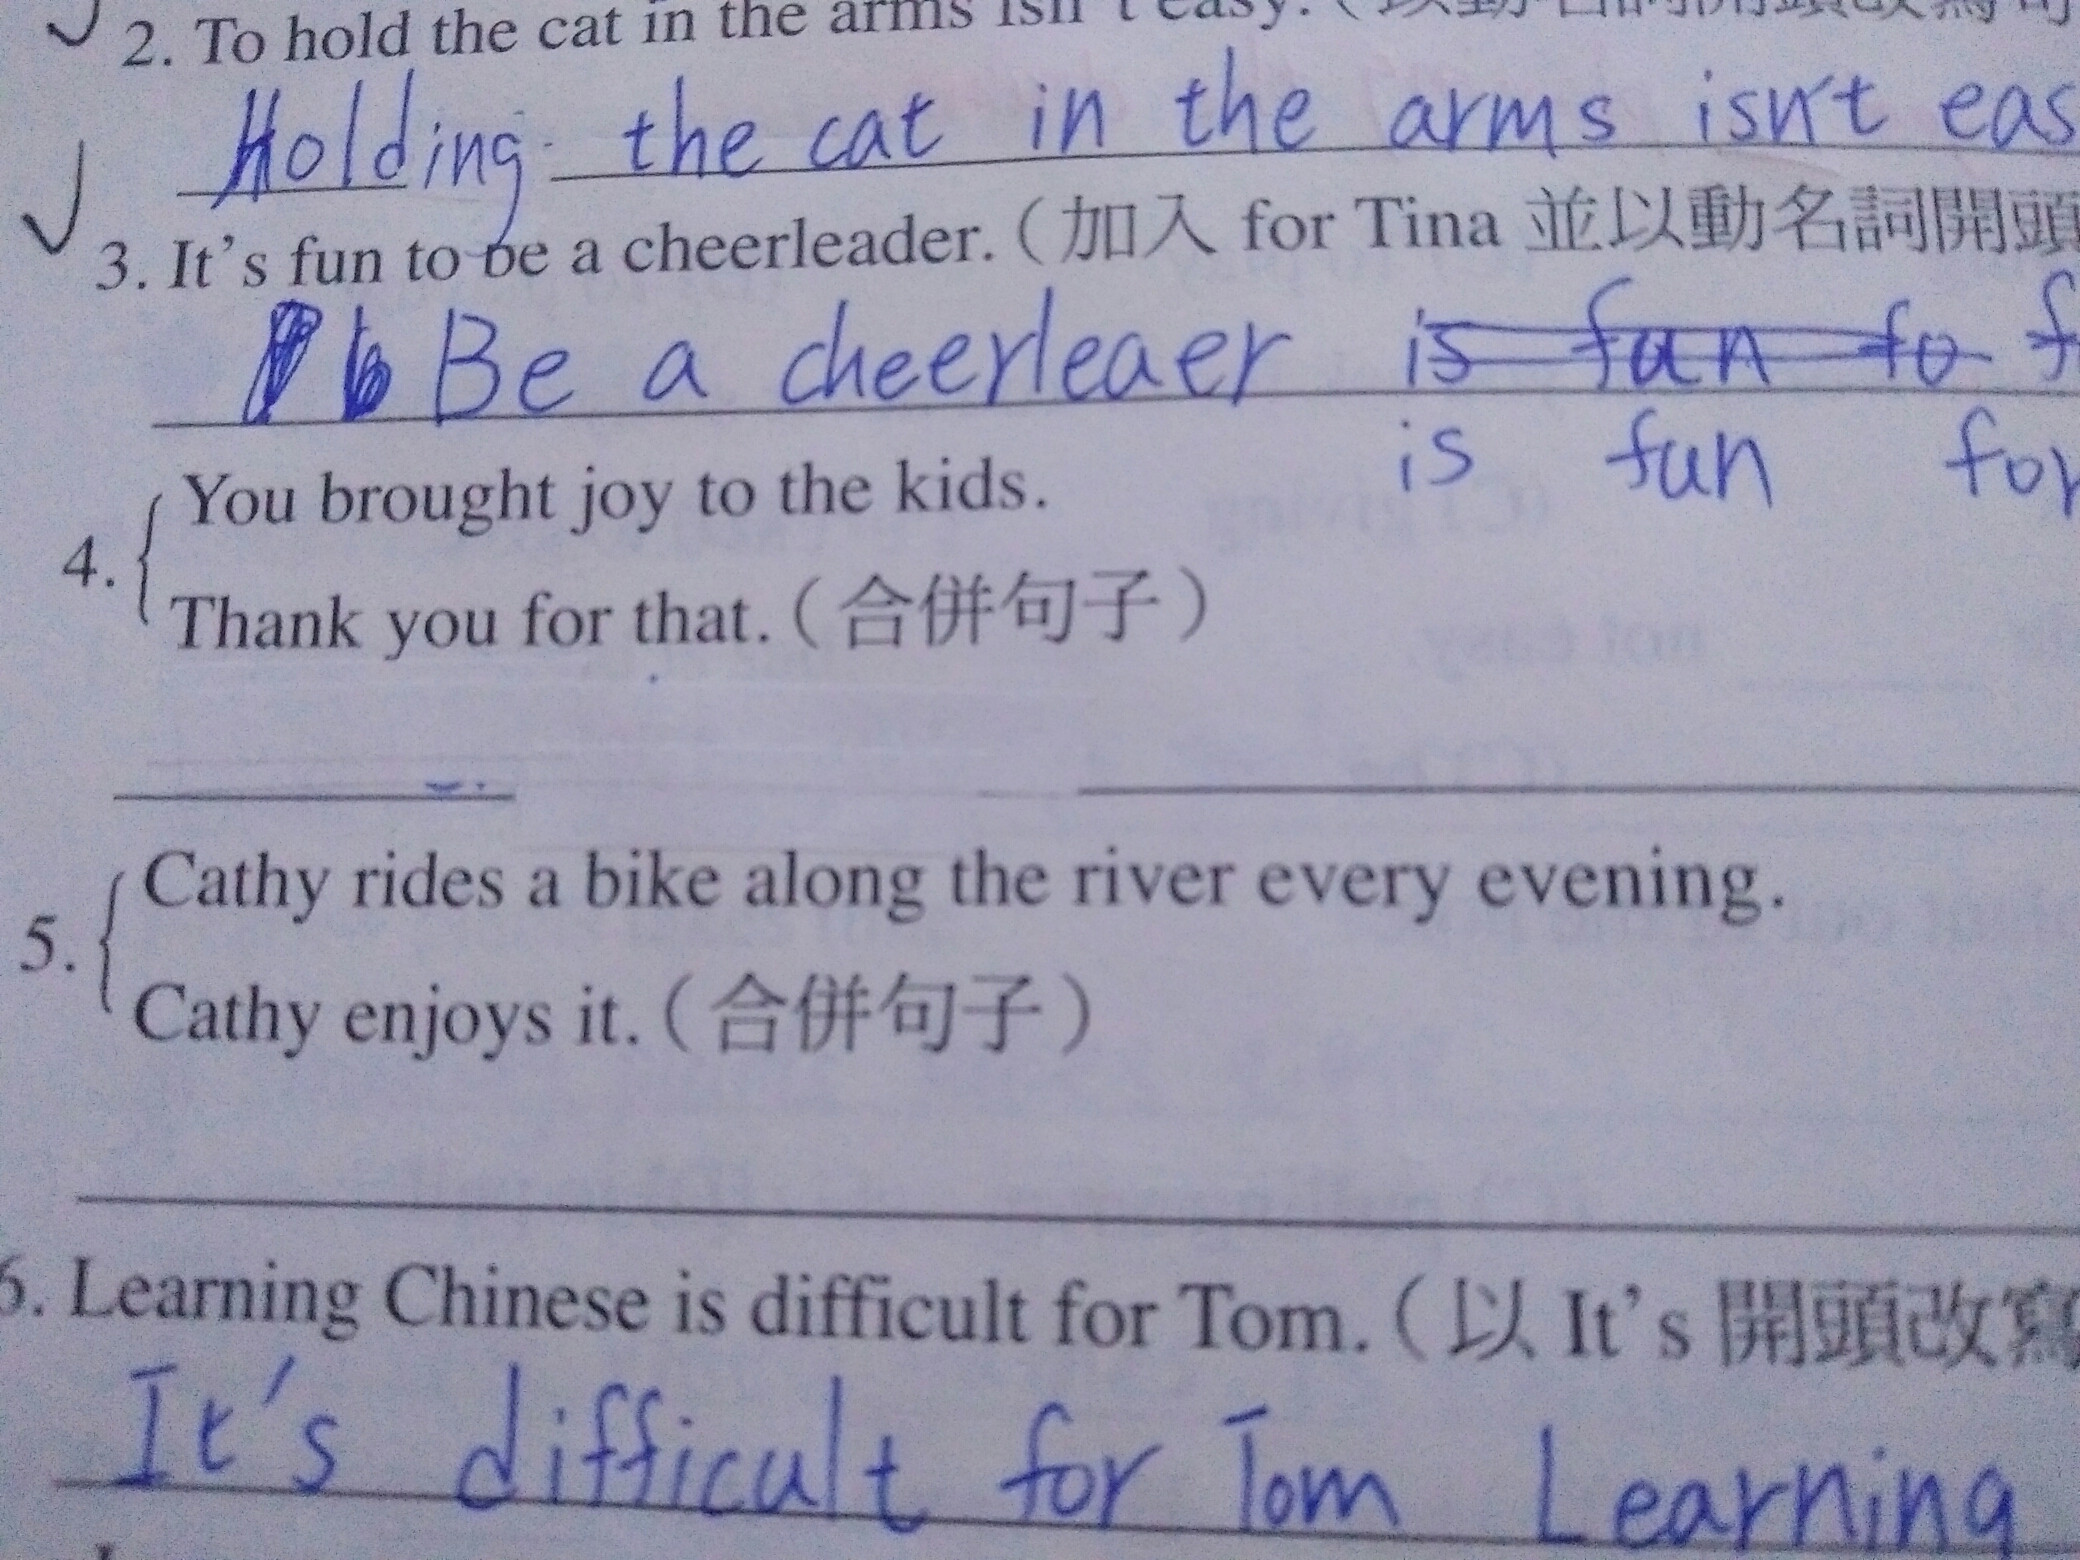 2. To hold the cat in the arms isn't easy. (以動名詞開頭改寫句
Holding the cat in the arms isn't eas
3. It's fun to be a cheerleader. (加入 for Tina 並以動名詞開頭
Be a cheerleaer is fun to f
is fun for
You brought joy to the kids.
4.
Thank you for that. (合併句子)
Cathy rides a bike along the river every evening.
5.
Cathy enjoys it. (合併句子)
6. Learning Chinese is difficult for Tom. (以 It's 開頭改寫
It's difficult for Tom Learning